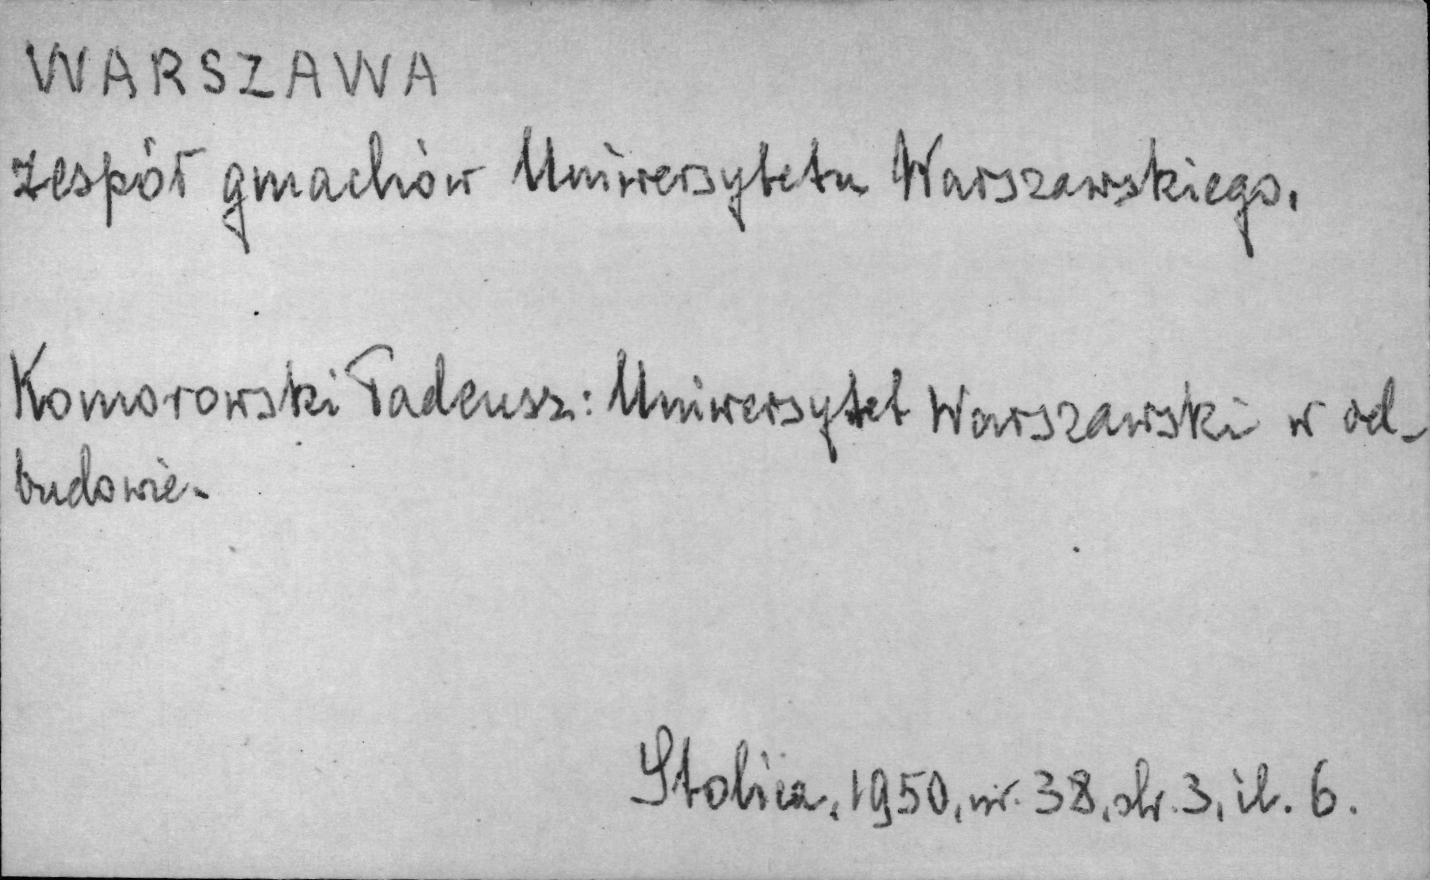 WARSZAWA
zespół gmachów Uniwersytetu Warszawskiego.
Komorowski Tadeusz: Uniwersytet Warszawski w od-
budowie.
Stolica, 1950, nr. 38, str. 3, il. 6.